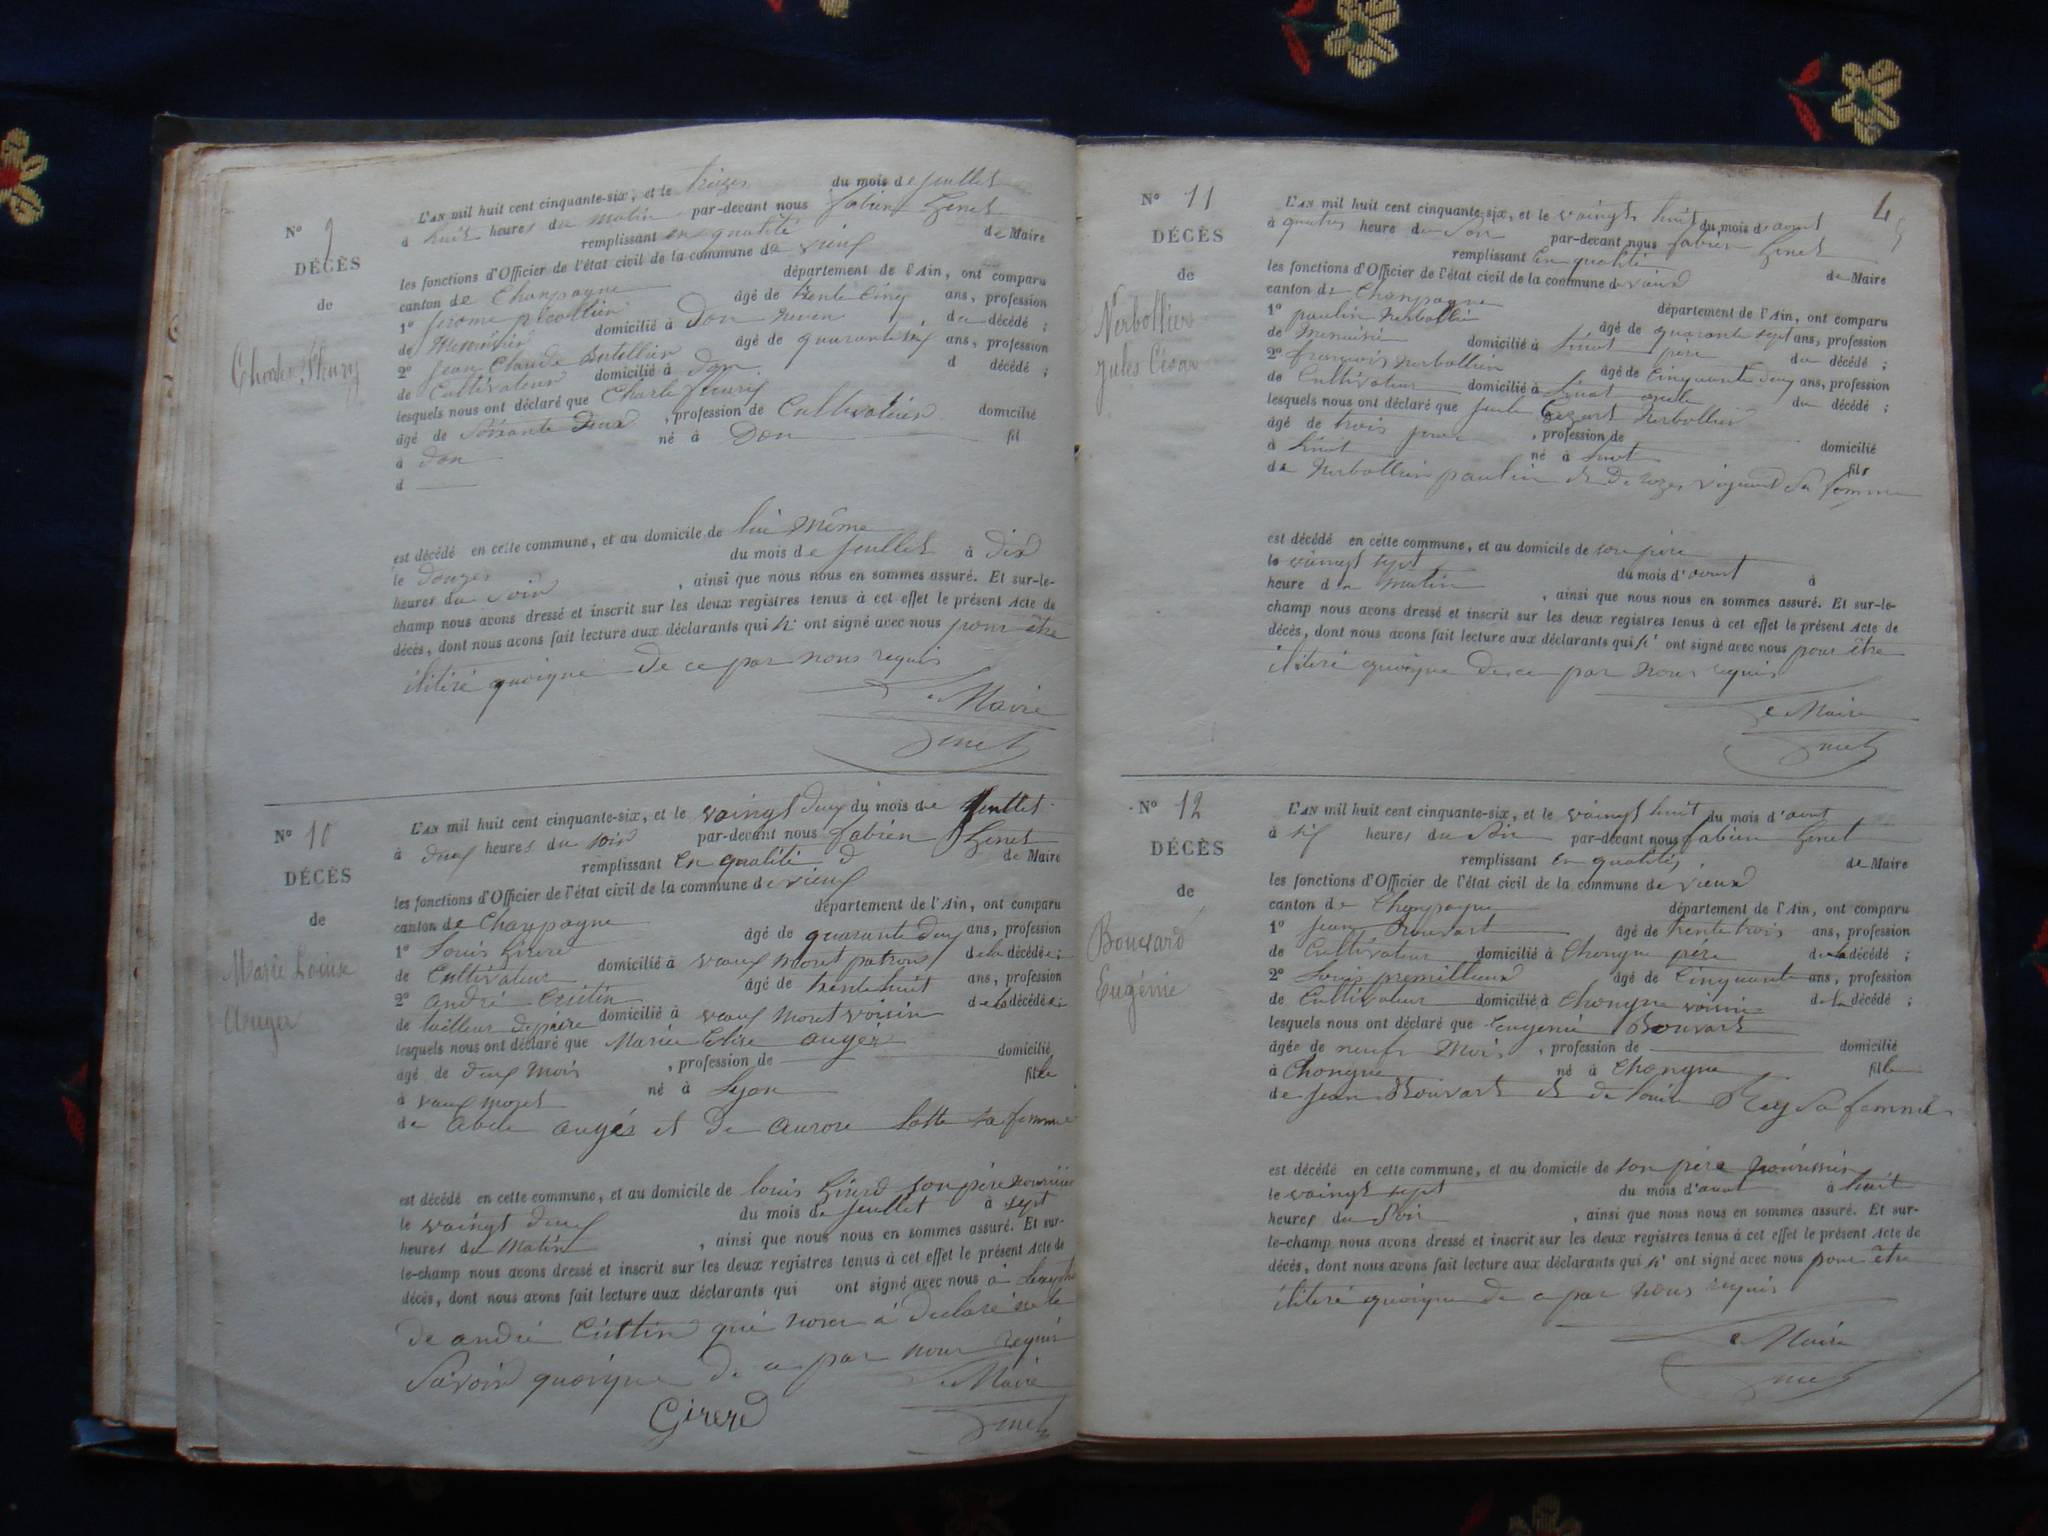 N° 9
DÉCÈS
de
Charles Fleury
L'AN mil huit cent cinquante-six, et le treizes du mois de Juillet
à huit heures du matin par-devant nous fabien Genet
remplissant en qualité de Maire
les fonctions d'Officier de l'état civil de la commune de vieux
canton de Champagne département de l'Ain, ont comparu
1° Jerome âgé de trente cinq ans, profession
de domicilié à Don neveu du décédé ;
2° Jean Claude âgé de quarante six ans, profession
de Cultivateur domicilié à Don d décédé ;
lesquels nous ont déclaré que Charle fleury
âgé de Soixante Deux , profession de Cultivateur domicilié
à Don né à Don fil
d
est décédé en cette commune, et au domicile de lui même
le Douzes du mois de Juillet à Dix
heures du Soir , ainsi que nous nous en sommes assuré. Et sur-le-
champ nous avons dressé et inscrit sur les deux registres tenus à cet effet le présent Acte de
décès, dont nous avons fait lecture aux déclarants qui n' ont signé avec nous pour être
ilitiré quoique de ce par nous requis
Le Maire
Genet
N° 10
DÉCÈS
de
Marie Louise
Auger
L'AN mil huit cent cinquante-six, et le vaingt deux du mois de Juillet
à deux heures du soir par-devant nous fabien Genet
remplissant en qualité d de Maire
les fonctions d'Officier de l'état civil de la commune de vieux
canton de Champagne département de l'Ain, ont comparu
1° Louis Girerd âgé de quarante deux ans, profession
de Cultivateur domicilié à vaux moret patron de la décédée ;
2° andré Cuttin âgé de trente huit ans, profession
de tailleur depière domicilié à vaux moret voisin de la décédée ;
lesquels nous ont déclaré que Mariee auger
âgé de deux mois , profession de domicilié
à vaux moret né à Lyon fille
de Abele augés et de aurore Lotte sa femme
est décédé en cette commune, et au domicile de louis Girerd son père nourricier
le vaingt deux du mois de Juillet à sept
heures du Matin , ainsi que nous nous en sommes assuré. Et sur-
le-champ nous avons dressé et inscrit sur les deux registres tenus à cet effet le présent Acte de
décès, dont nous avons fait lecture aux déclarants qui ont signé avec nous à
de andré Cuttin qui nous à déclaré ne le
Savoir quoique de ce par nous requis
Le Maire
Girerd
Genet
4
N° 11
DÉCÈS
de
Nerbollier
Jules César
L'AN mil huit cent cinquante-six, et le vaingt huit du mois d'aout
à quatres heure du Soir par-devant nous fabien Genet
remplissant En qualité de Maire
les fonctions d'Officier de l'état civil de la commune de vieux
canton de Champagne département de l'Ain, ont comparu
1° paulin Nerbollier âgé de quarante sept ans, profession
de Menuisié domicilié à Linot père du décédé ;
2° françois Nerbollier âgé de Cinquante deux ans, profession
de Cultivateur domicilié à Linot oncle du décédé ;
lesquels nous ont déclaré que Jule Cezart Nerbollier
âgé de trois jour , profession de domicilié
à Linot né à Linot fils
de Nerbollier paulin et De sa femme
est décédé en cette commune, et au domicile de son père
le vaingt sept du mois d'aout à
heure du matin , ainsi que nous nous en sommes assuré. Et sur-le-
champ nous avons dressé et inscrit sur les deux registres tenus à cet effet le présent Acte de
décès, dont nous avons fait lecture aux déclarants qui n' ont signé avec nous pour être
ilitiré quoique de ce par nous requis
Le Maire
Genet
N° 12
DÉCÈS
de
Bouvard
Eugénie
L'AN mil huit cent cinquante-six, et le vaingt huit du mois d'aout
à six heures du Soir par-devant nous fabien Genet
remplissant en qualité de Maire
les fonctions d'Officier de l'état civil de la commune de vieux
canton de Champagne département de l'Ain, ont comparu
1° Jean Bouvart âgé de trente trois ans, profession
de Cultivateur domicilié à Chongne père de la décédé ;
2° Louis premillieux âgé de Cinquante ans, profession
de Cultivateur domicilié à Chongne voisin de la décédé ;
lesquels nous ont déclaré que Eugenie Bouvart
âgée de neufs Mois , profession de domicilié
à Chongne né à Chongne fille
de Jean Bouvart et de Louise Rey Sa femme
est décédé en cette commune, et au domicile de son père
le vaingt sept du mois d'aout à huit
heures du Soir , ainsi que nous nous en sommes assuré. Et sur-
le-champ nous avons dressé et inscrit sur les deux registres tenus à cet effet le présent Acte de
décès, dont nous avons fait lecture aux déclarants qui n' ont signé avec nous pour être
ilitiré quoique de ce par nous requis
Le Maire
Genet